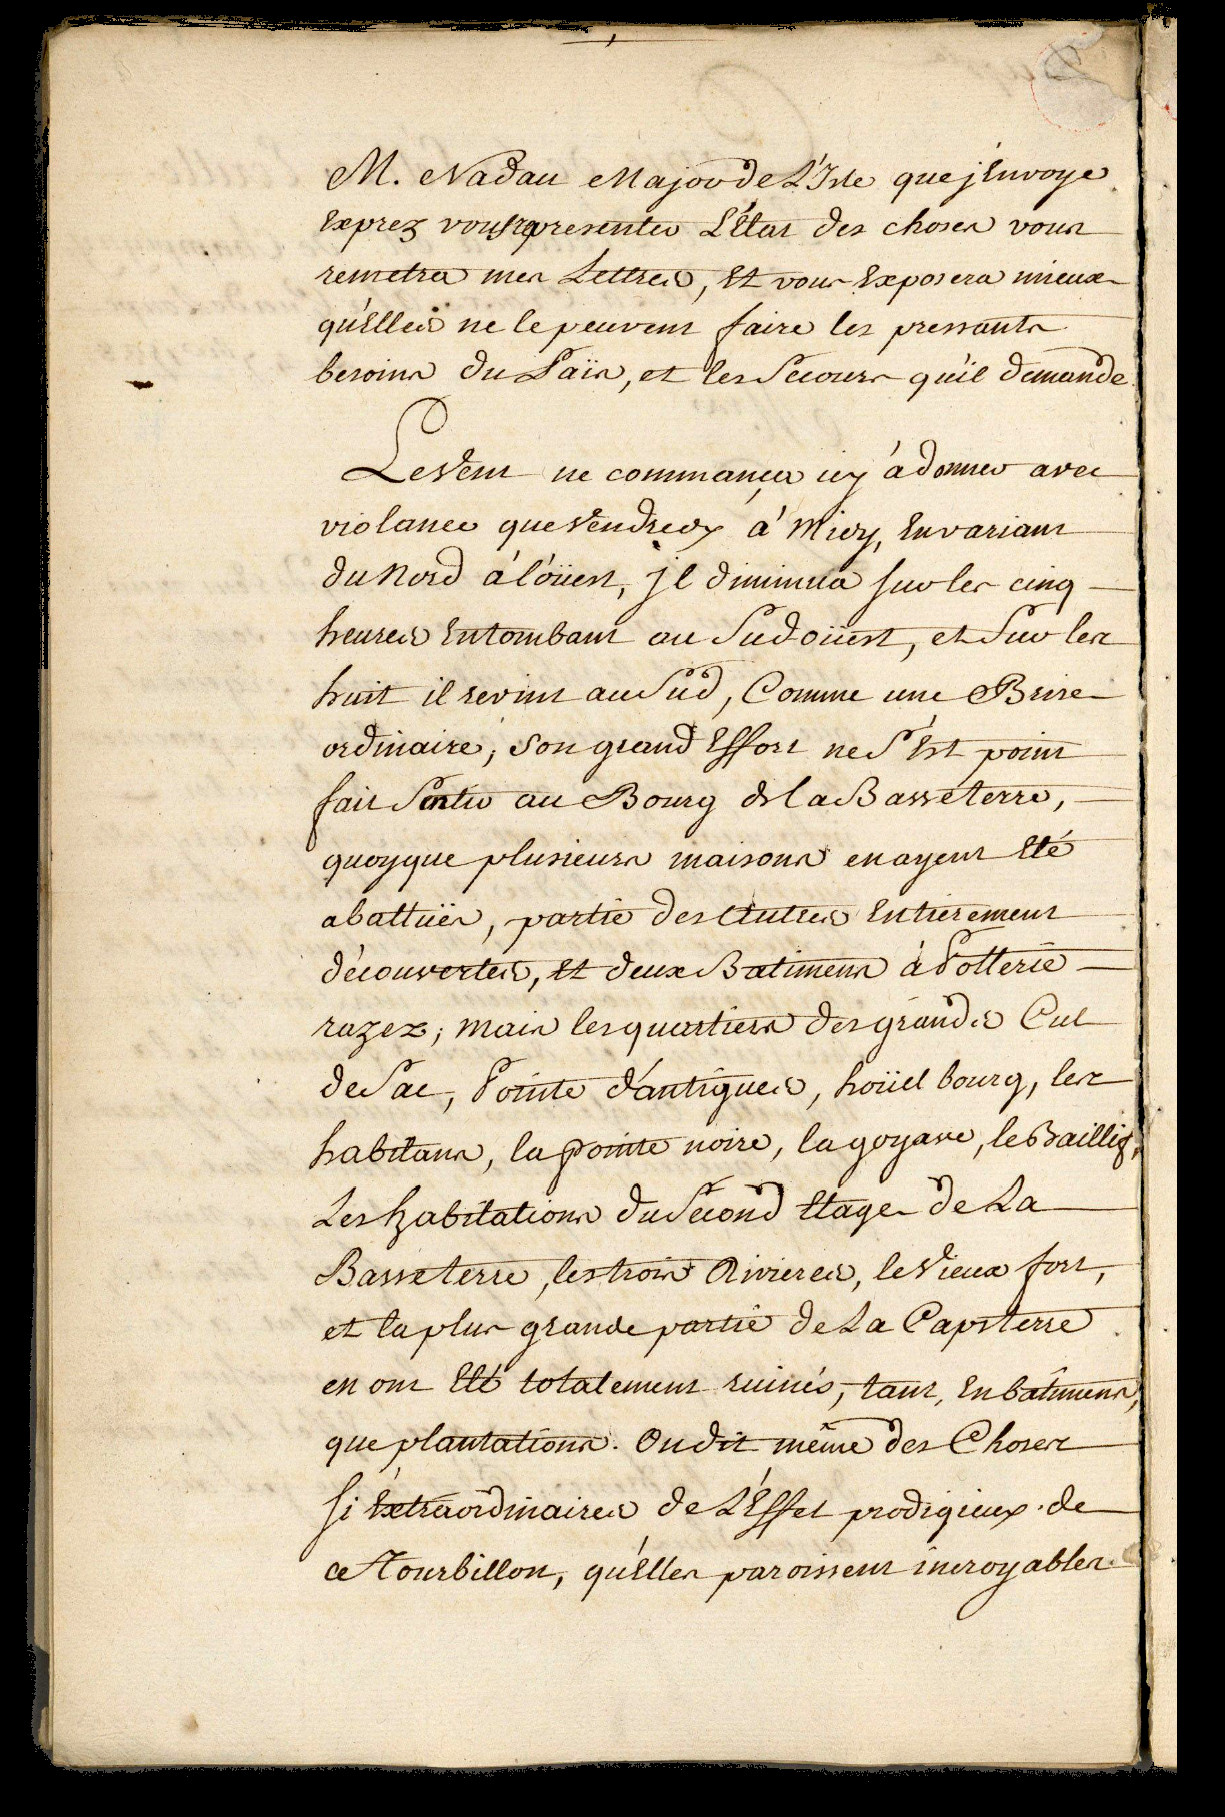 M. Nadau Major de L'Isle que j'Envoye
Exprez vous representer L'Etat des choses vous
remetra mes Lettres, Et vous Exposera mieux
qu'Elles ne le peuvent faire les pressants
besoins du Païs, et les Secours qu'il demande.
Le Vent ne commança icy à donner avec
violance que Vendredy à Midy, En variant
du Nord à l'oüest, jl diminua sur les cinq
heures En tombant au Sud oüest, et Sur les
huit il revint au Sud, Comme une Brise
ordinaire; Son grand Effort ne S'Est point
fait Sentir au Bourg de la Basseterre,
quoyque plusieurs maisons en ayent Eté
abattuës, partie des Autres Entierement
découvertes, Et deux Batimens à Potterie
razez; Mais les quartiers des grands Cul
de Sac, Pointe d'antigues, hoüel bourg, les
habitans, la pointe noire, la goyave, le Baillif,
Les habitations du Second Etage de La
Basseterre, les trois Rivieres, le Vieux fort,
et la plus grande partie de La Capsterre
en ont Eté totalement ruinés, tant, En batimens,
que plantations. On dit même des Choses
si Extraordinaires de L'Effet prodigieux de
ce Tourbillon, qu'Elles paroissent incroyables